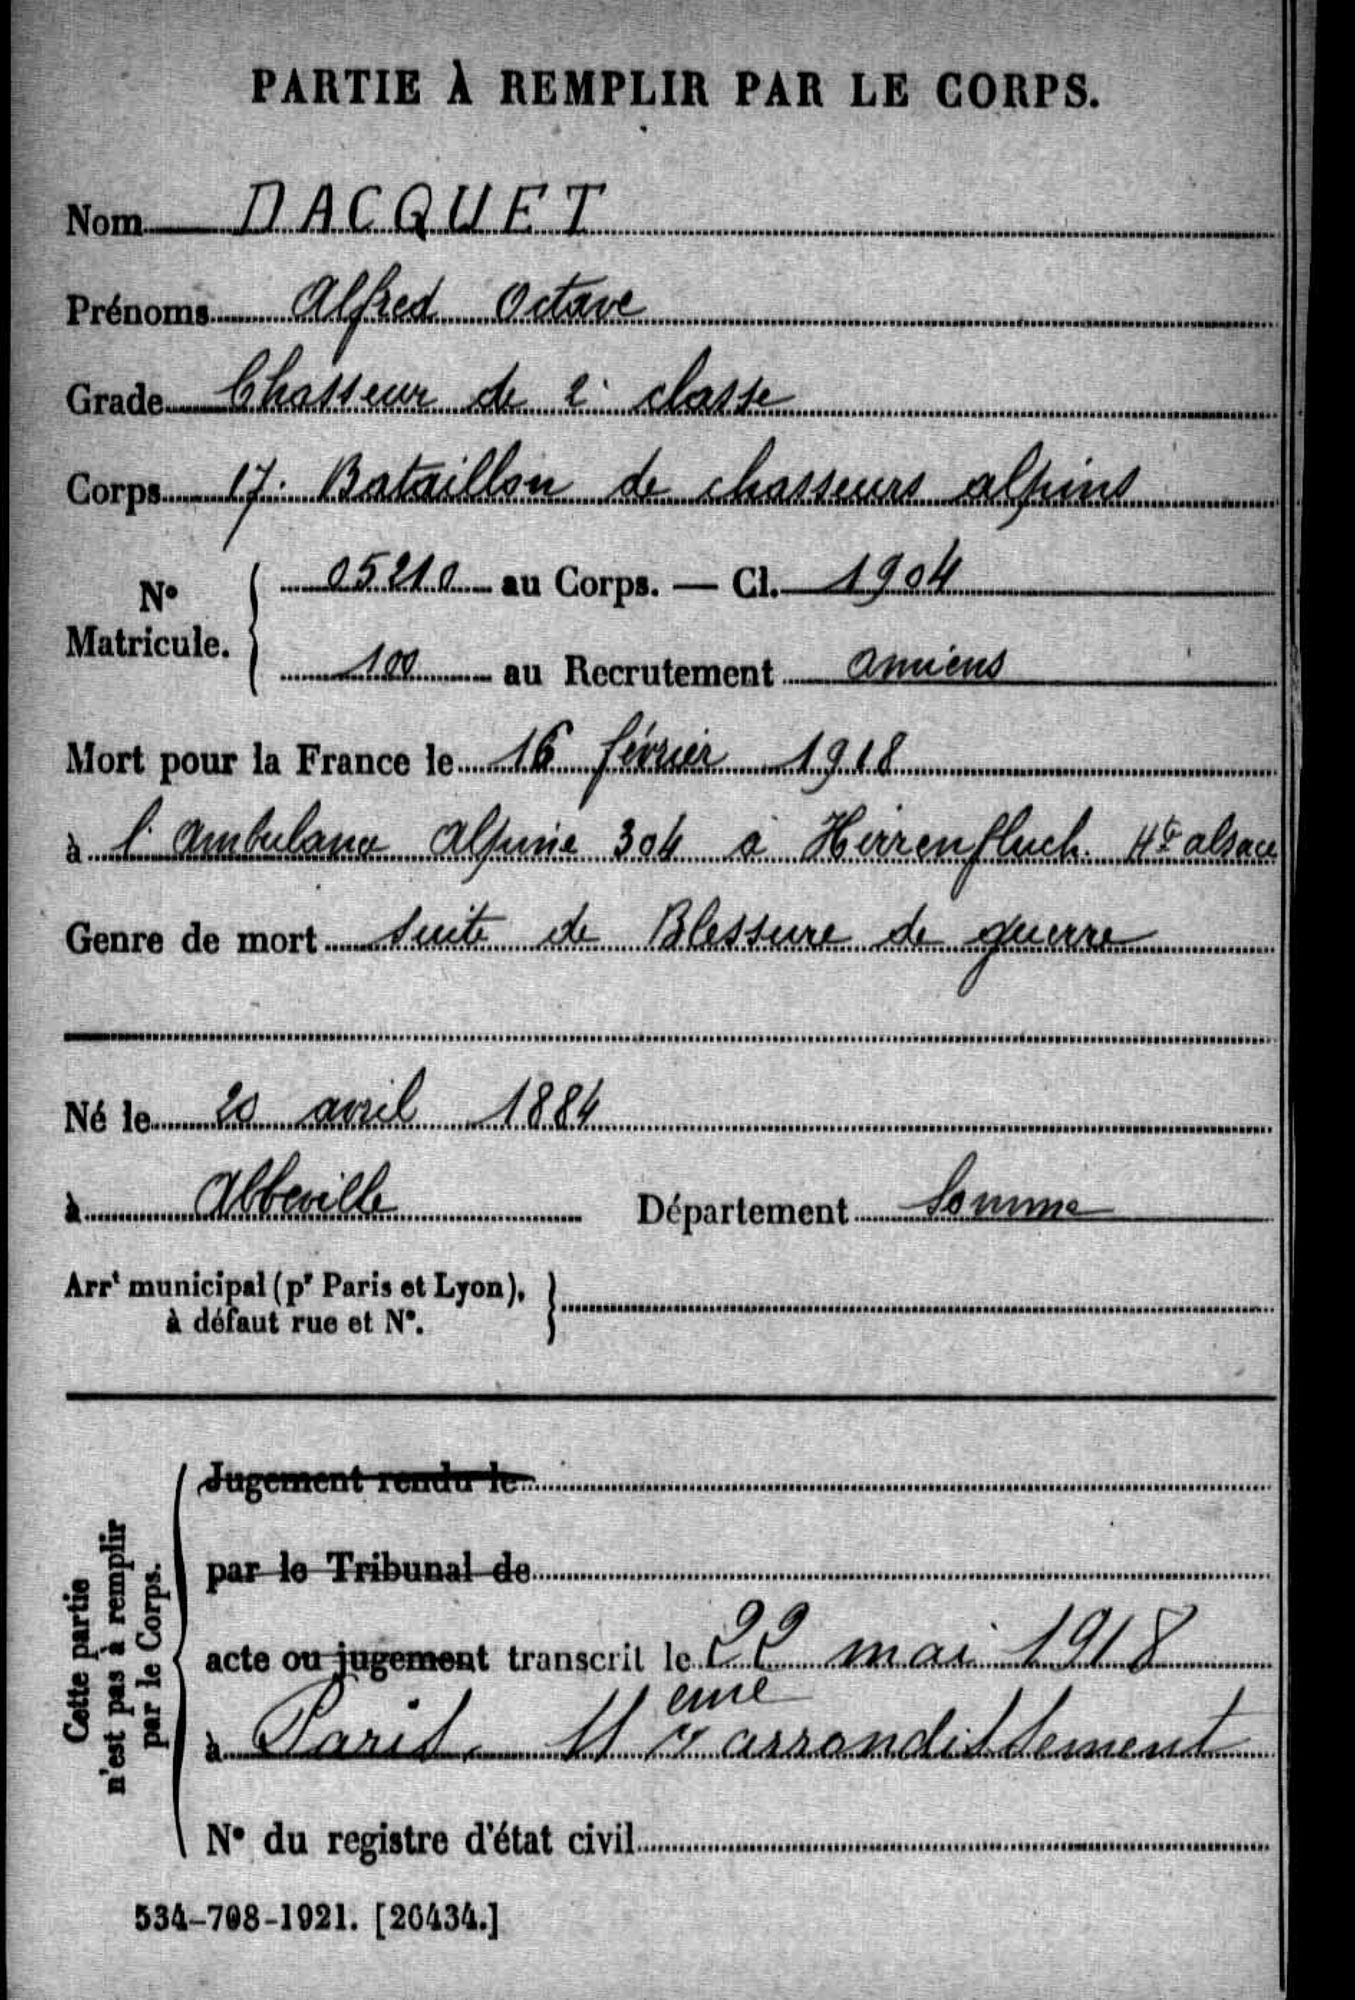 PARTIE À REMPLIR PAR LE CORPS.
Nom DACQUET
Prénoms Alfred Octave
Grade Chasseur de 2e classe
Corps 17. Bataillon de chasseurs alpins
N° Matricule. { 05210 au Corps. — Cl. 1904
100 au Recrutement Amiens
Mort pour la France le 16 février 1918
à l'ambulance alpine 304 à Hirrenfluch. Hte alsace
Genre de mort suite de Blessure de guerre
Né le 20 avril 1884
à Abbeville Département Somme
Arrt municipal (pr Paris et Lyon), à défaut rue et N°. }
Cette partie n'est pas à remplir par le Corps.
Jugement rendu le
par le Tribunal de
acte ou jugement transcrit le 22 mai 1918
à Paris. 11eme arrondissement
N° du registre d'état civil
534-708-1921. [26434.]